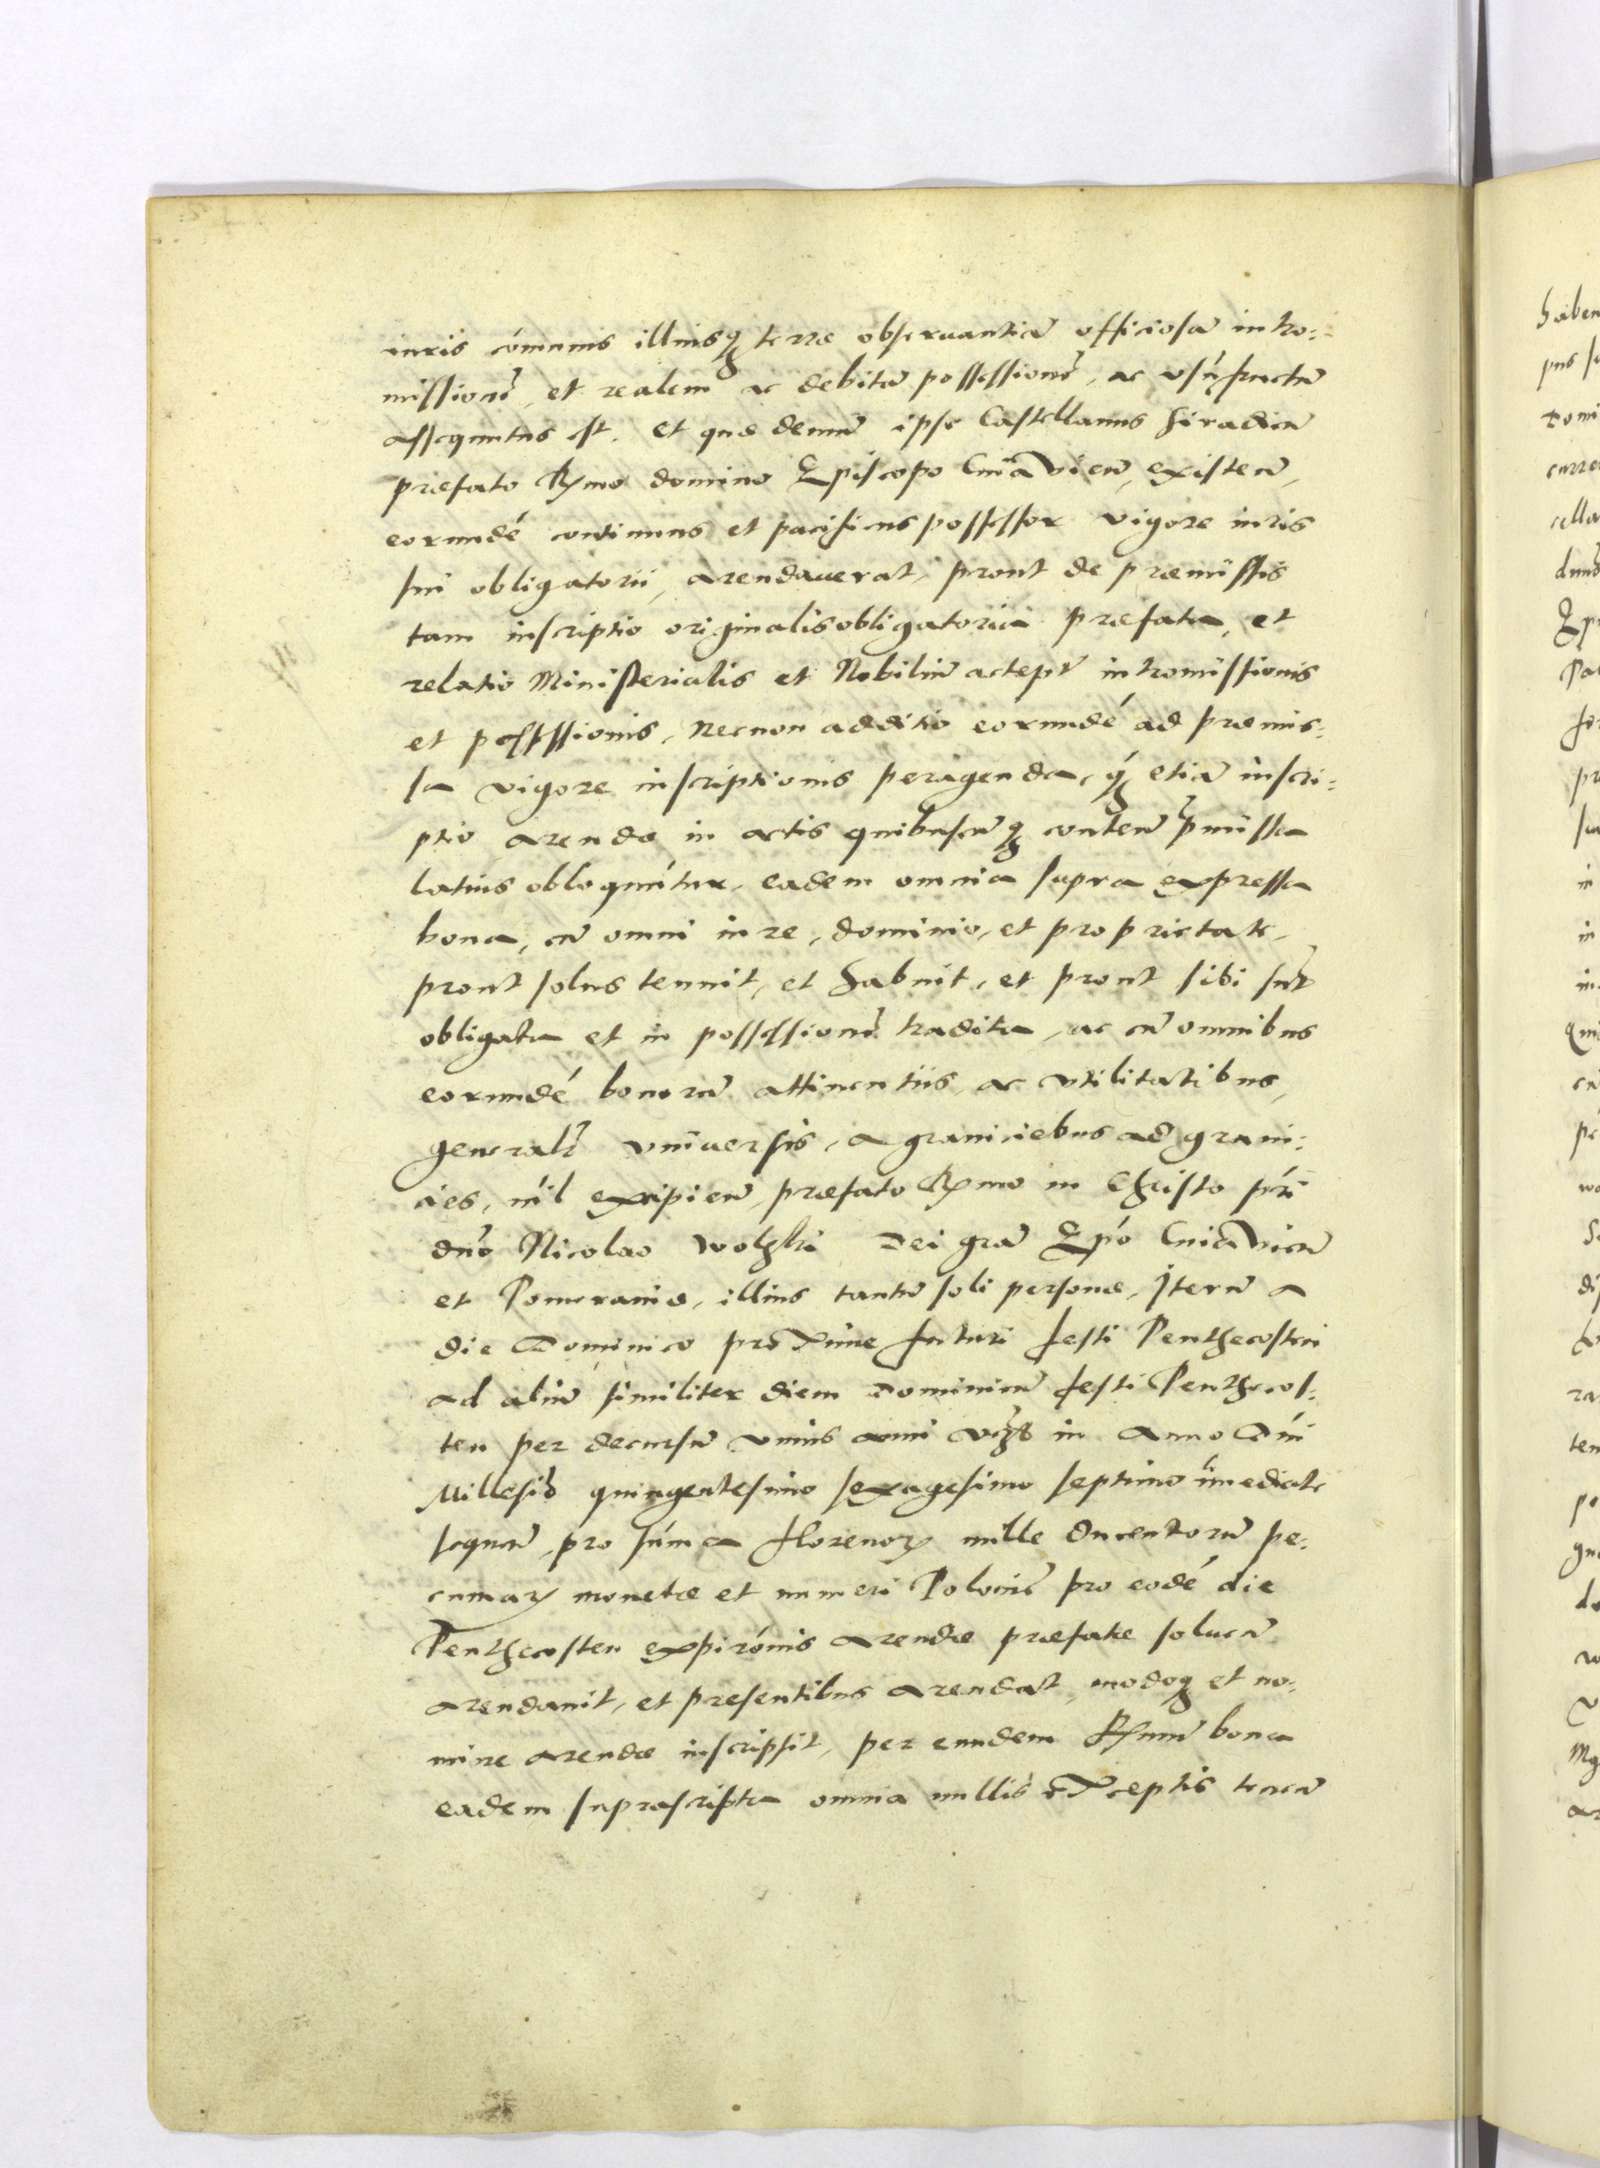 iuris cómunis illiusq terre obseruantiā officiosā intro:
missionē, et realem ac debitā possessionē, ac vsūfructū
assequutus est. et quæ demū ipse Castellanus Siradien̄
præfato R̄mo domino Episcopo Cuiavien̄, existen̄,
eorundé continuus et pacificus possessor vigore iuris
sui obligatorii, arendauerat, prout de præmissis
tam inscriptio originalis obligatoria præfata, et
relatio Ministerialis et Nobiliū acteptꝰ intromissionis
et possessionis, necnon additio eorundé ad præmis:
sa vigore inscriptionis peragenda, q́ etiā inscri:
ptio arendæ in actis quibuscūq conten̄ p̄missa
latius obloquútur, eadem omnia supra expressa
bona, cū omni iure, dominio, et proprietate,
prout solus tenuit, et habuit, et prout sibi sūt
obligata et in possessionē tradita, ac cū omnibus
eorundé bonorū attinentiis ac vtilitatibus,
generalr̄ vniuersis, a graniciebus ad grani:
cies, níl excipien̄, præfato R̄mo in Christo pr̄i
dn̄o Nicolao Wolzki Dei gr̄a Epó Cuiavien̄
et Pomeraniæ, illius tantū soli personæ, Iterū a
die Dominico proxime futuri festi Penthecosten
ad aliū similiter diem dominicū festi Penthecos:
ten per decursū vnius anni vcz in Anno Dńi
Millesiō quingentesimo sexagesimo septimo īmediate
sequen̄, pro súmea florenoꝝ mille ducentorū pe:
cuniaꝝ monetæ et numeri Polonicē pro eodé die
Penthecosten expirónis arendæ præfatæ soluen̄
arendauit, et presentibus arendat, modoq et no:
mine arendæ inscripsit, per eundem R̄mū bona
eadem suprascripta omnia nullis exceptis tenen̄